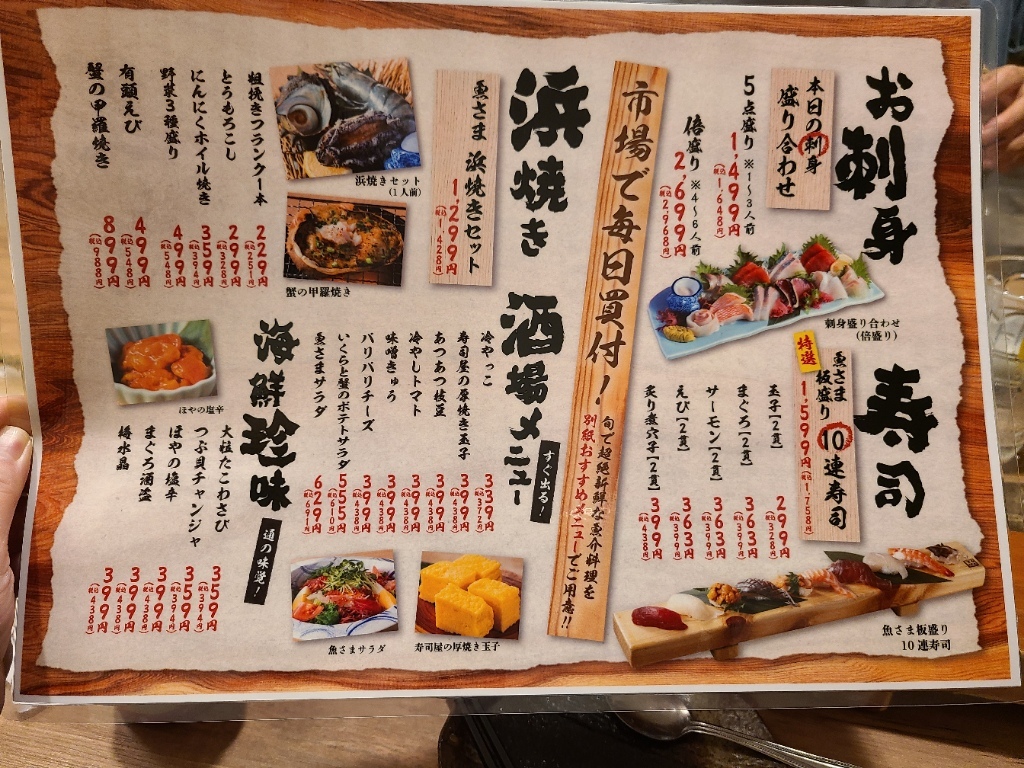 お刺身
本日の刺身
盛り合わせ
5点盛り ※1～3人前
1,499円
(税込1,648円)
倍盛り ※4～6人前
2,699円
(税込2,968円)
刺身盛り合わせ
(倍盛り)
寿司
特選
魚さま
板盛り10連寿司
1,599円(税込1,758円)
玉子【2貫】 299円(税込328円)
まぐろ【2貫】 363円(税込399円)
サーモン【2貫】 363円(税込399円)
えび【2貫】 363円(税込399円)
炙り煮穴子【2貫】 399円(税込438円)
魚さま板盛り
10連寿司
市場で毎日買付!
旬で超絶新鮮な魚介料理を
別紙おすすめメニューでご用意!!
浜焼き
魚さま 浜焼きセット
1,299円
(税込1,428円)
浜焼きセット
(1人前)
蟹の甲羅焼き
粗挽きフランク一本 229円(税込251円)
とうもろこし 299円(税込328円)
にんにくホイル焼き 359円(税込394円)
野菜3種盛り 499円(税込548円)
有頭えび 499円(税込548円)
蟹の甲羅焼き 899円(税込988円)
酒場メニュー
すぐ出る!
冷やっこ 339円(税込372円)
寿司屋の厚焼き玉子 399円(税込438円)
あつあつ枝豆 399円(税込438円)
冷やしトマト 399円(税込438円)
味噌きゅう 399円(税込438円)
パリパリチーズ 399円(税込438円)
いくらと蟹のポテトサラダ 555円(税込610円)
魚さまサラダ 629円(税込691円)
魚さまサラダ
寿司屋の厚焼き玉子
海鮮珍味
通の味覚!
ほやの塩辛
大粒たこわさび 359円(税込394円)
つぶ貝チャンジャ 359円(税込394円)
ほやの塩辛 399円(税込438円)
まぐろ酒盗 399円(税込438円)
梅水晶 399円(税込438円)